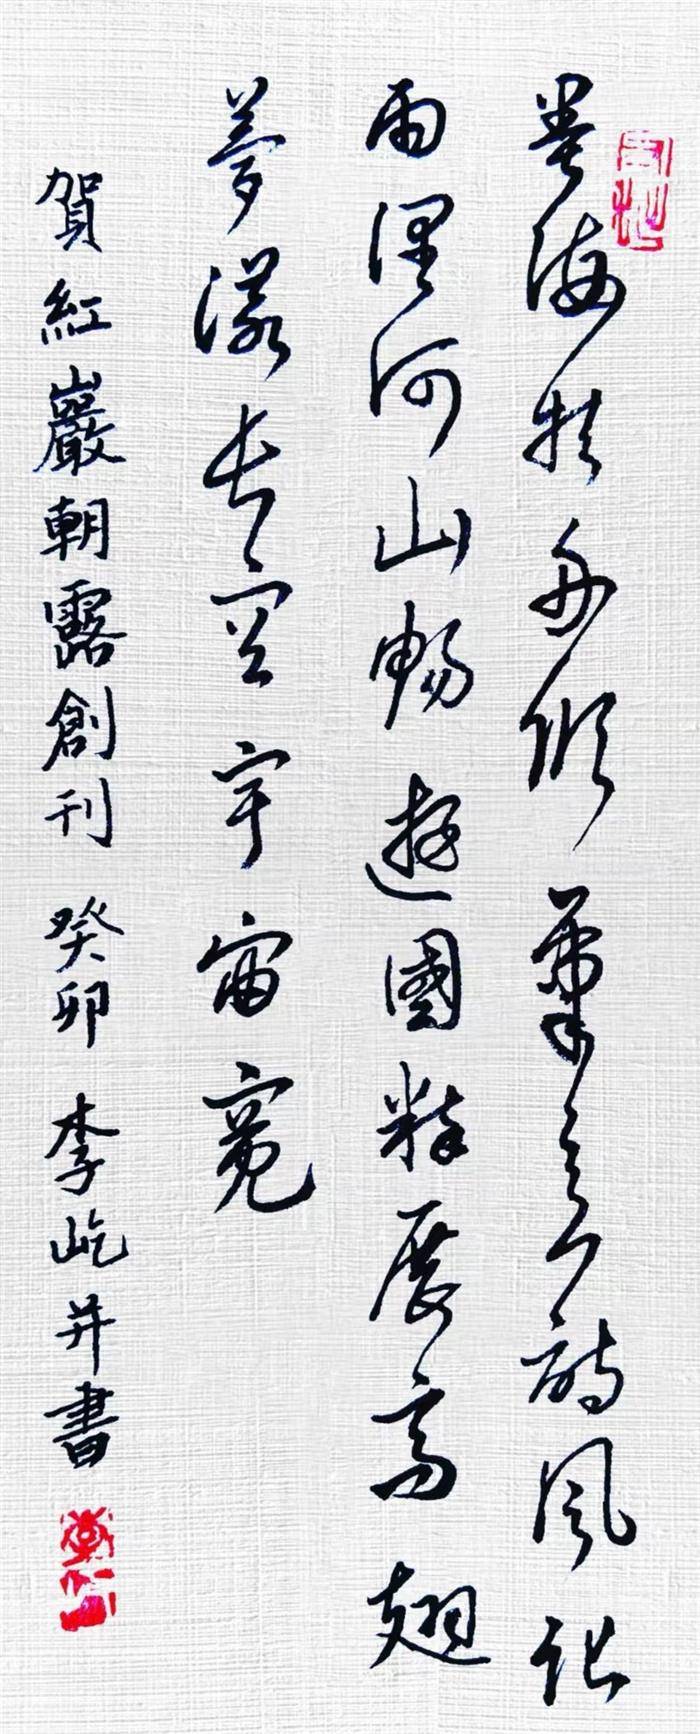 墨海舟筆意詩風化
雨潤河山暢遊國粹展高翅
夢漾長空宇宙寬
賀紅巖朝露創刊 癸卯 李屹并書